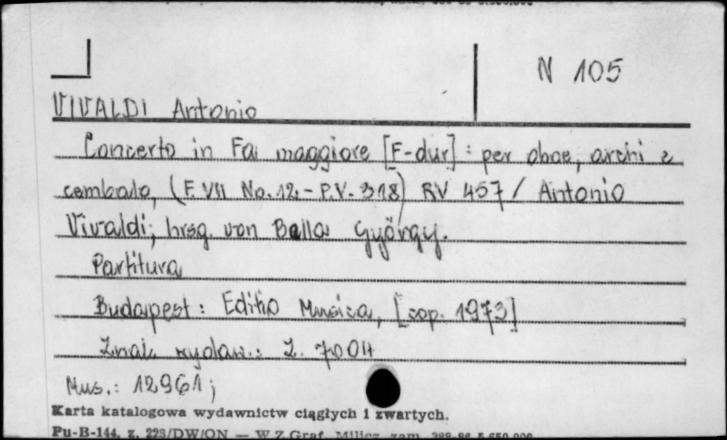 N 105
VIVALDI Antonio
Concerto in Fa maggiore [F-dur] : per oboe, archi e
cembalo, (F. VII No. 12 - P.V. 318) RV 457 / Antonio
Vivaldi; hrsg. von Balla György.
Partitura
Budapest : Editio Musica, [cop. 1973]
Znak wydaw.: Z. 7004
Mus.: 12961;
Karta katalogowa wydawnictw ciągłych i zwartych.
Pu-B-144, z. 223/DW/ON — W.Z.Graf. Milicz zam.